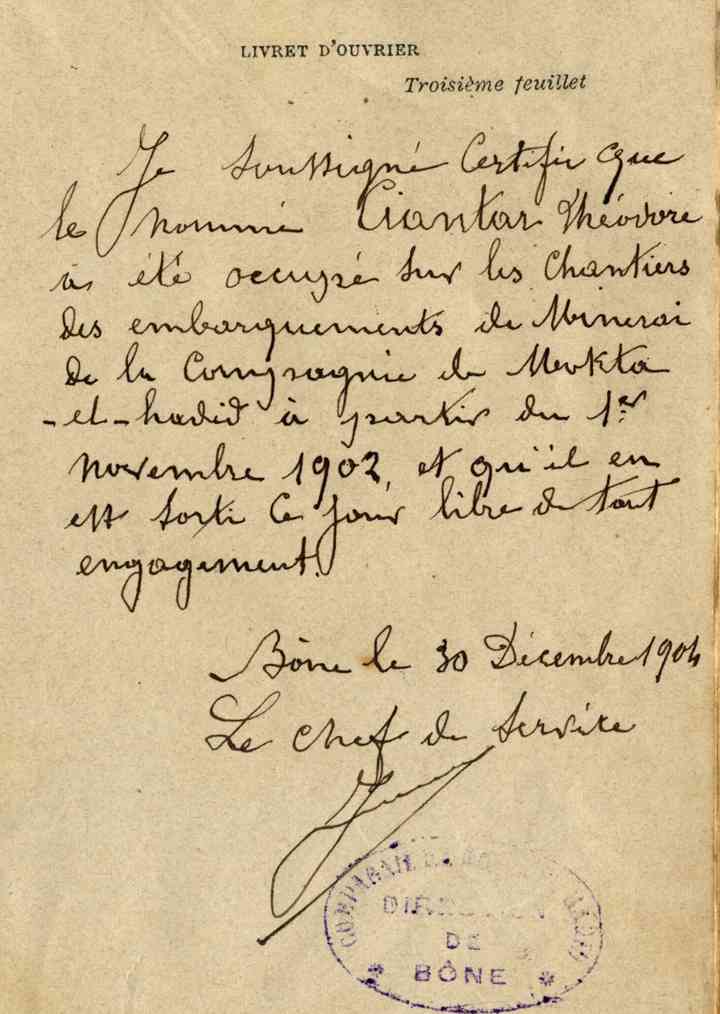 LIVRET D'OUVRIER
Troisième feuillet
Je soussigné Certifie que
le nommé Ciantar Théodore
à été occupé sur les Chantiers
des embarquements de Minerai
de la Compagnie de Mokta
-el-hadid à partir du 1er
novembre 1902, et qu'il en
est sorti ce jour libre de tout
engagement.
Bône le 30 Décembre 1904
Le chef de service
DIRECTION
DE
* BÔNE *